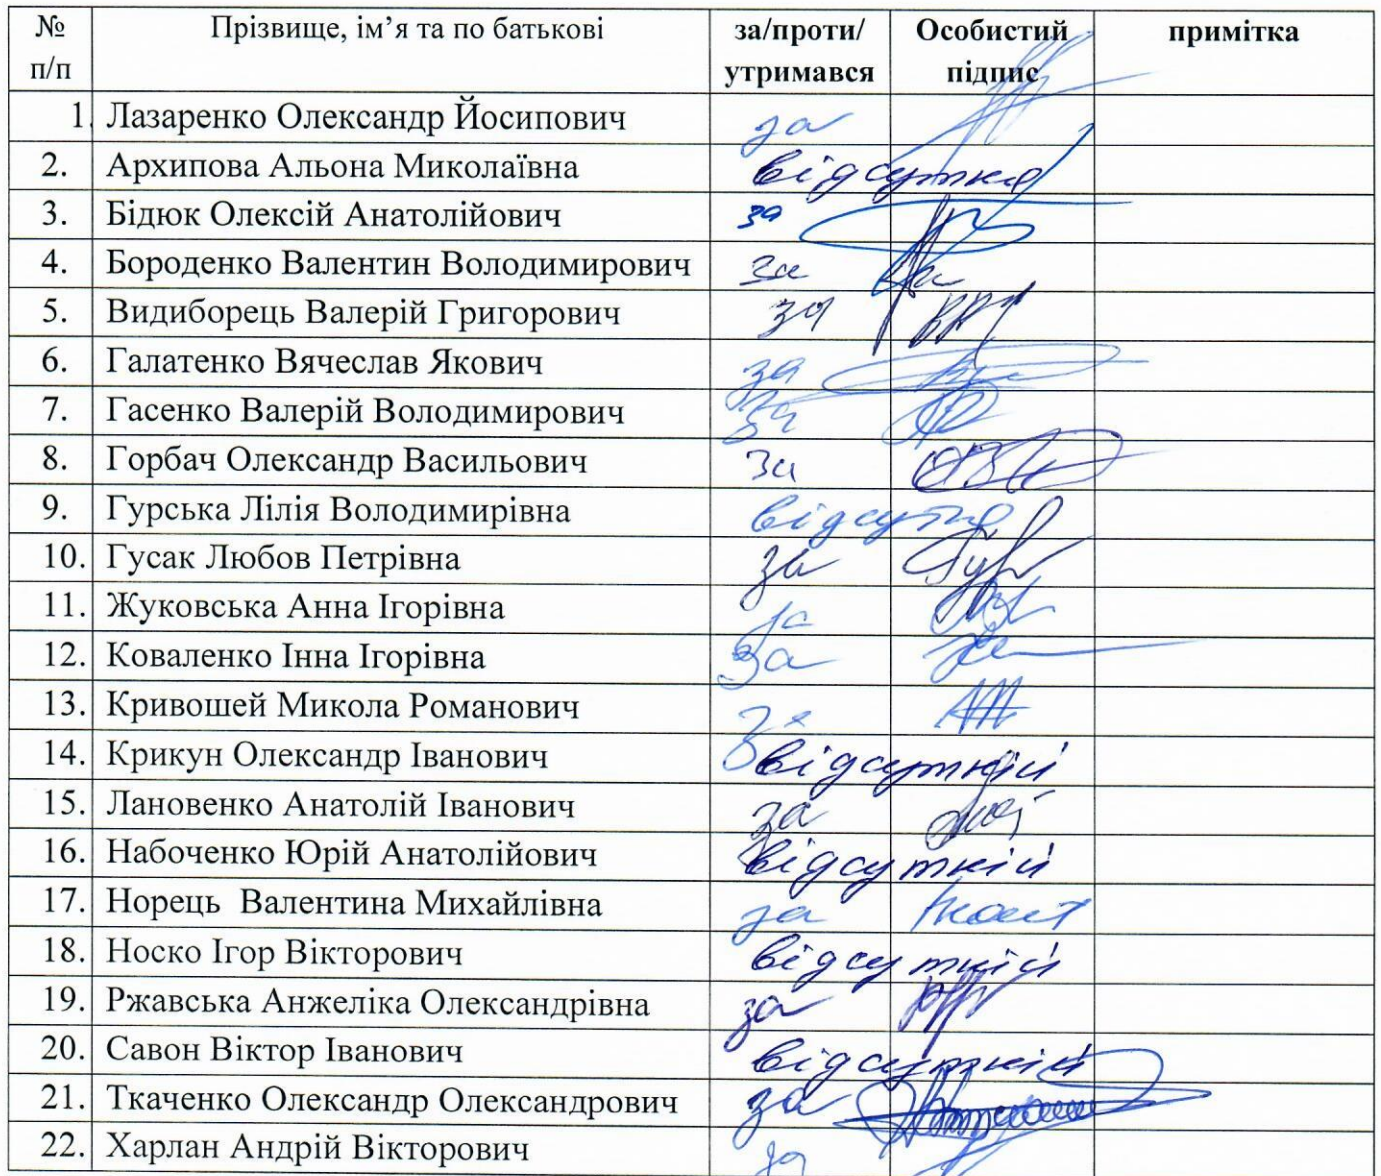 № п/п Прізвище, ім’я та по батькові за/проти/ утримався Особистий підпис примітка
1. Лазаренко Олександр Йосипович за
2. Архипова Альона Миколаївна відсутня
3. Бідюк Олексій Анатолійович за
4. Бороденко Валентин Володимирович за
5. Видиборець Валерій Григорович за
6. Галатенко Вячеслав Якович за
7. Гасенко Валерій Володимирович за
8. Горбач Олександр Васильович за
9. Гурська Лілія Володимирівна відсутня
10. Гусак Любов Петрівна за
11. Жуковська Анна Ігорівна за
12. Коваленко Інна Ігорівна за
13. Кривошей Микола Романович за
14. Крикун Олександр Іванович відсутній
15. Лановенко Анатолій Іванович за
16. Набоченко Юрій Анатолійович відсутній
17. Норець Валентина Михайлівна за
18. Носко Ігор Вікторович відсутній
19. Ржавська Анжеліка Олександрівна за
20. Савон Віктор Іванович відсутній
21. Ткаченко Олександр Олександрович за
22. Харлан Андрій Вікторович за